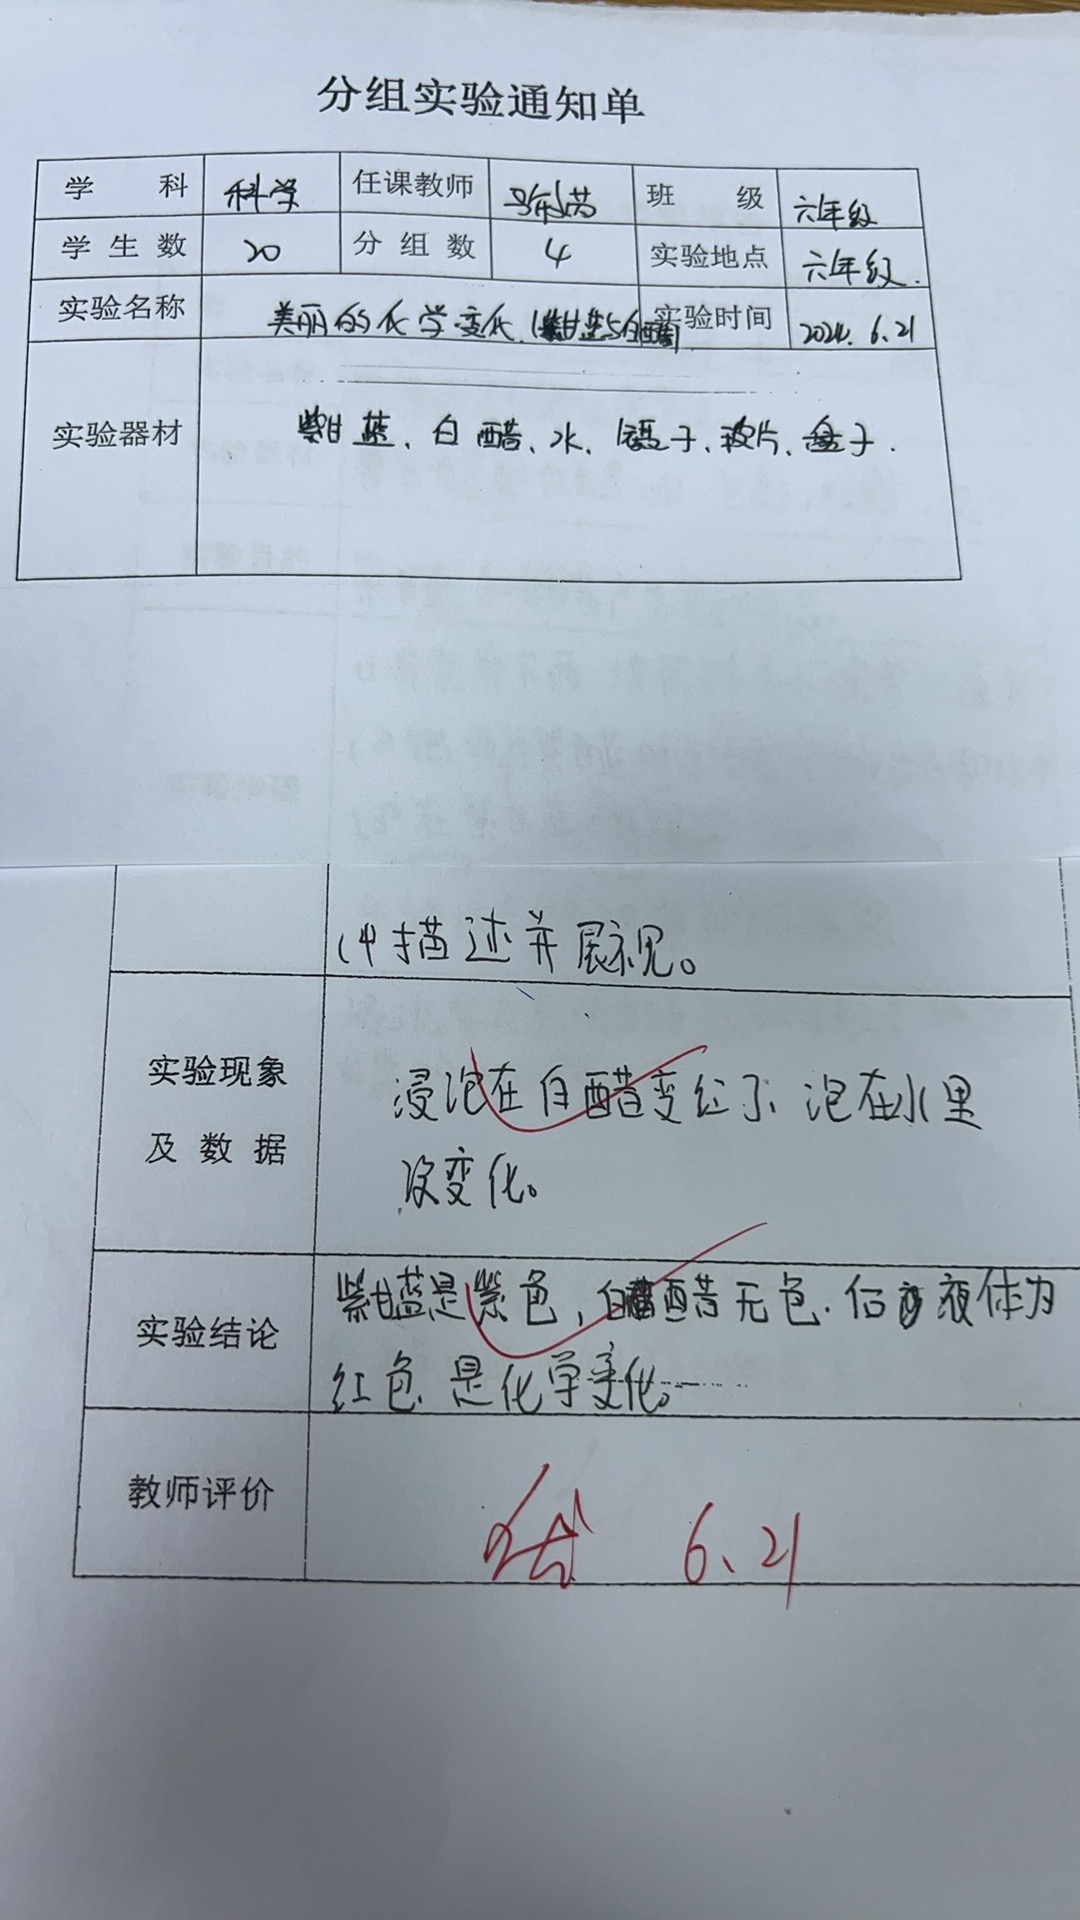 分组实验通知单
学 科 科学 任课教师 班 级 六年级
学 生 数 20 分 组 数 4 实验地点 六年级.
实验名称 美丽的化学变化.(紫甘蓝与白醋) 实验时间 2024.6.21
实验器材 紫甘蓝、白醋、水、镊子、玻片、盒子.
(4)描述并展示见。
实验现象
及 数 据
浸泡在白醋变红了、泡在水里
没变化。
实验结论
紫甘蓝是紫色,白醋无色.但液体为
红色.是化学变化。
教师评价 6.21